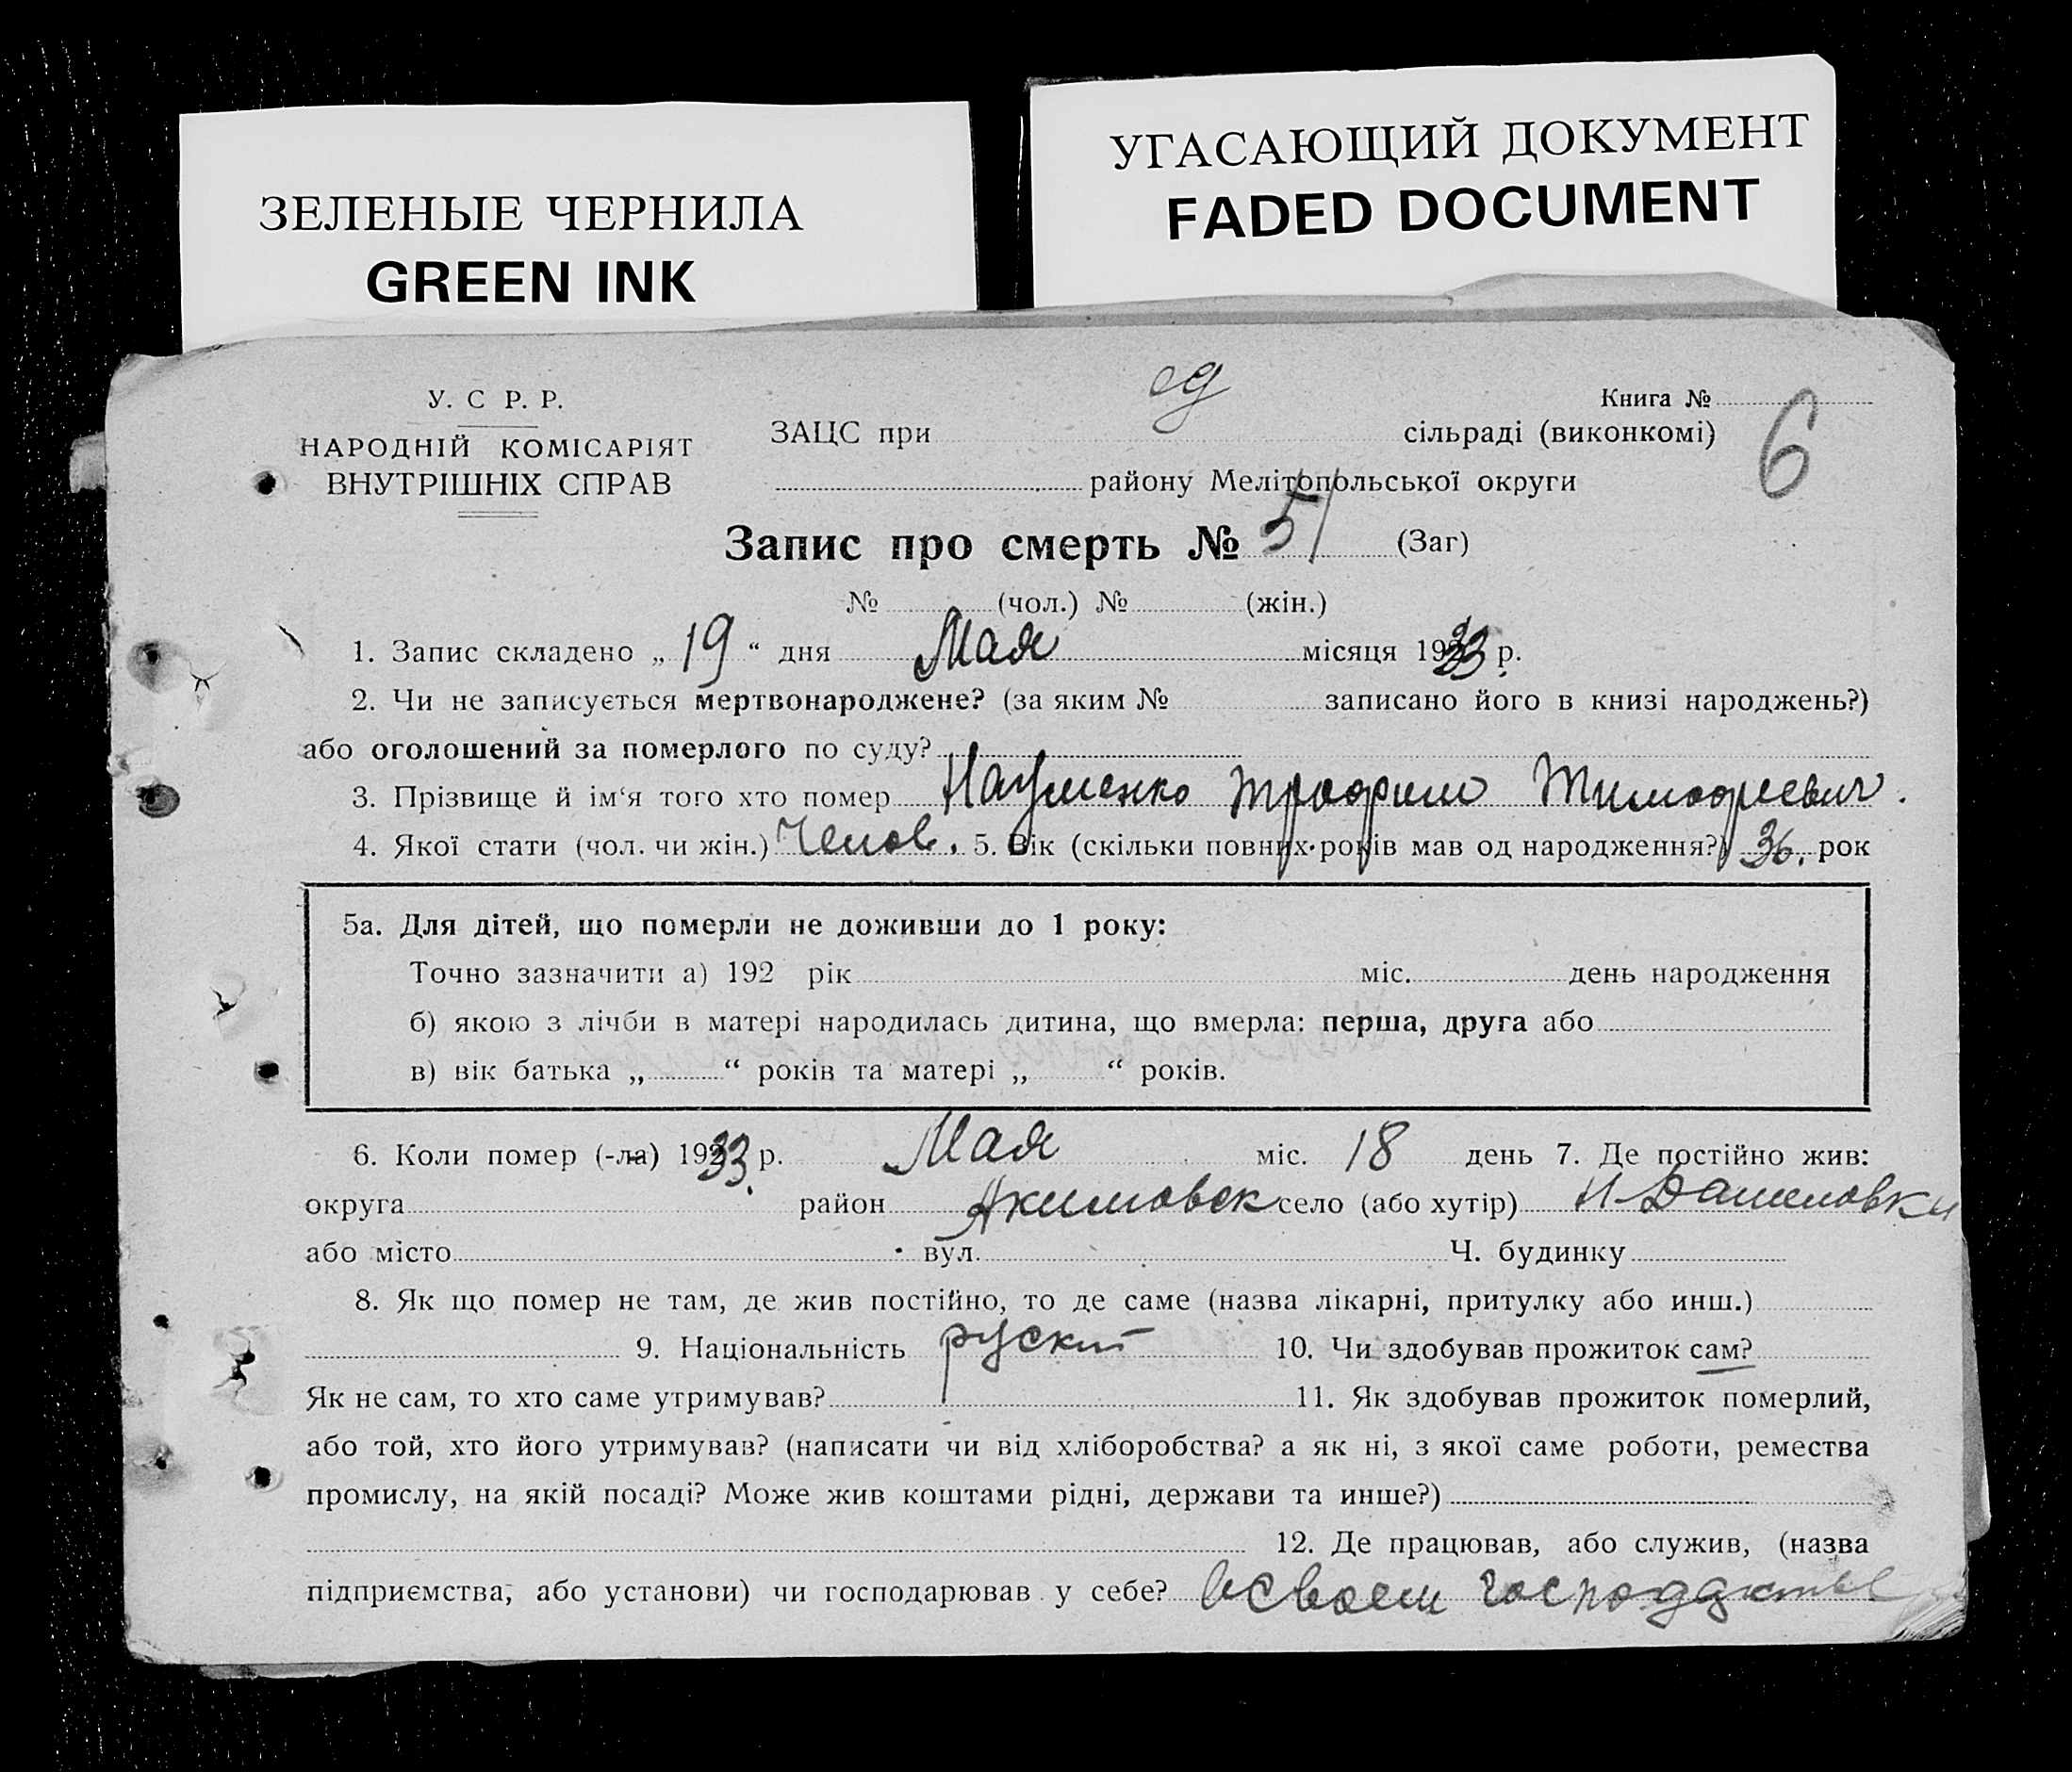 ЗЕЛЕНЫЕ ЧЕРНИЛА
GREEN INK
УГАСАЮЩИЙ ДОКУМЕНТ
FADED DOCUMENT
У. С Р. Р.
НАРОДНІЙ КОМІСАРІЯТ
ВНУТРІШНІХ СПРАВ
Книга №
6
ЗАЦС при сільраді (виконкомі)
району Мелітопольської округи
Запис про смерть № 51 (Заг)
№ (чол.) № (жін.)
1. Запис складено „ 19 “ дня Мая місяця 1933 р.
2. Чи не записується мертвонароджене? (за яким № записано його в книзі народжень?)
або оголошений за померлого по суду?
3. Прізвище й ім'я того хто помер Науменко Трофим Тимофеевич.
4. Якої стати (чол. чи жін.) Челов. 5. Вік (скільки повних років мав од народження?) 36. рок
5а. Для дітей, що померли не доживши до 1 року:
Точно зазначити а) 192 рік міс. день народження
б) якою з лічби в матері народилась дитина, що вмерла: перша, друга або
в) вік батька „ “ років та матері „ “ років.
6. Коли помер (-ла) 1933 р. Мая міс. 18 день 7. Де постійно жив:
округа район Акимовск село (або хутір) Н-Даниловки
або місто вул. Ч. будинку
8. Як що помер не там, де жив постійно, то де саме (назва лікарні, притулку або инш.)
9. Національність руский 10. Чи здобував прожиток сам?
Як не сам, то хто саме утримував? 11. Як здобував прожиток померлий,
або той, хто його утримував? (написати чи від хліборобства? а як ні, з якої саме роботи, ремества
промислу, на якій посаді? Може жив коштами рідні, держави та инше?)
12. Де працював, або служив, (назва
підприємства, або установи) чи господарював у себе? в своем